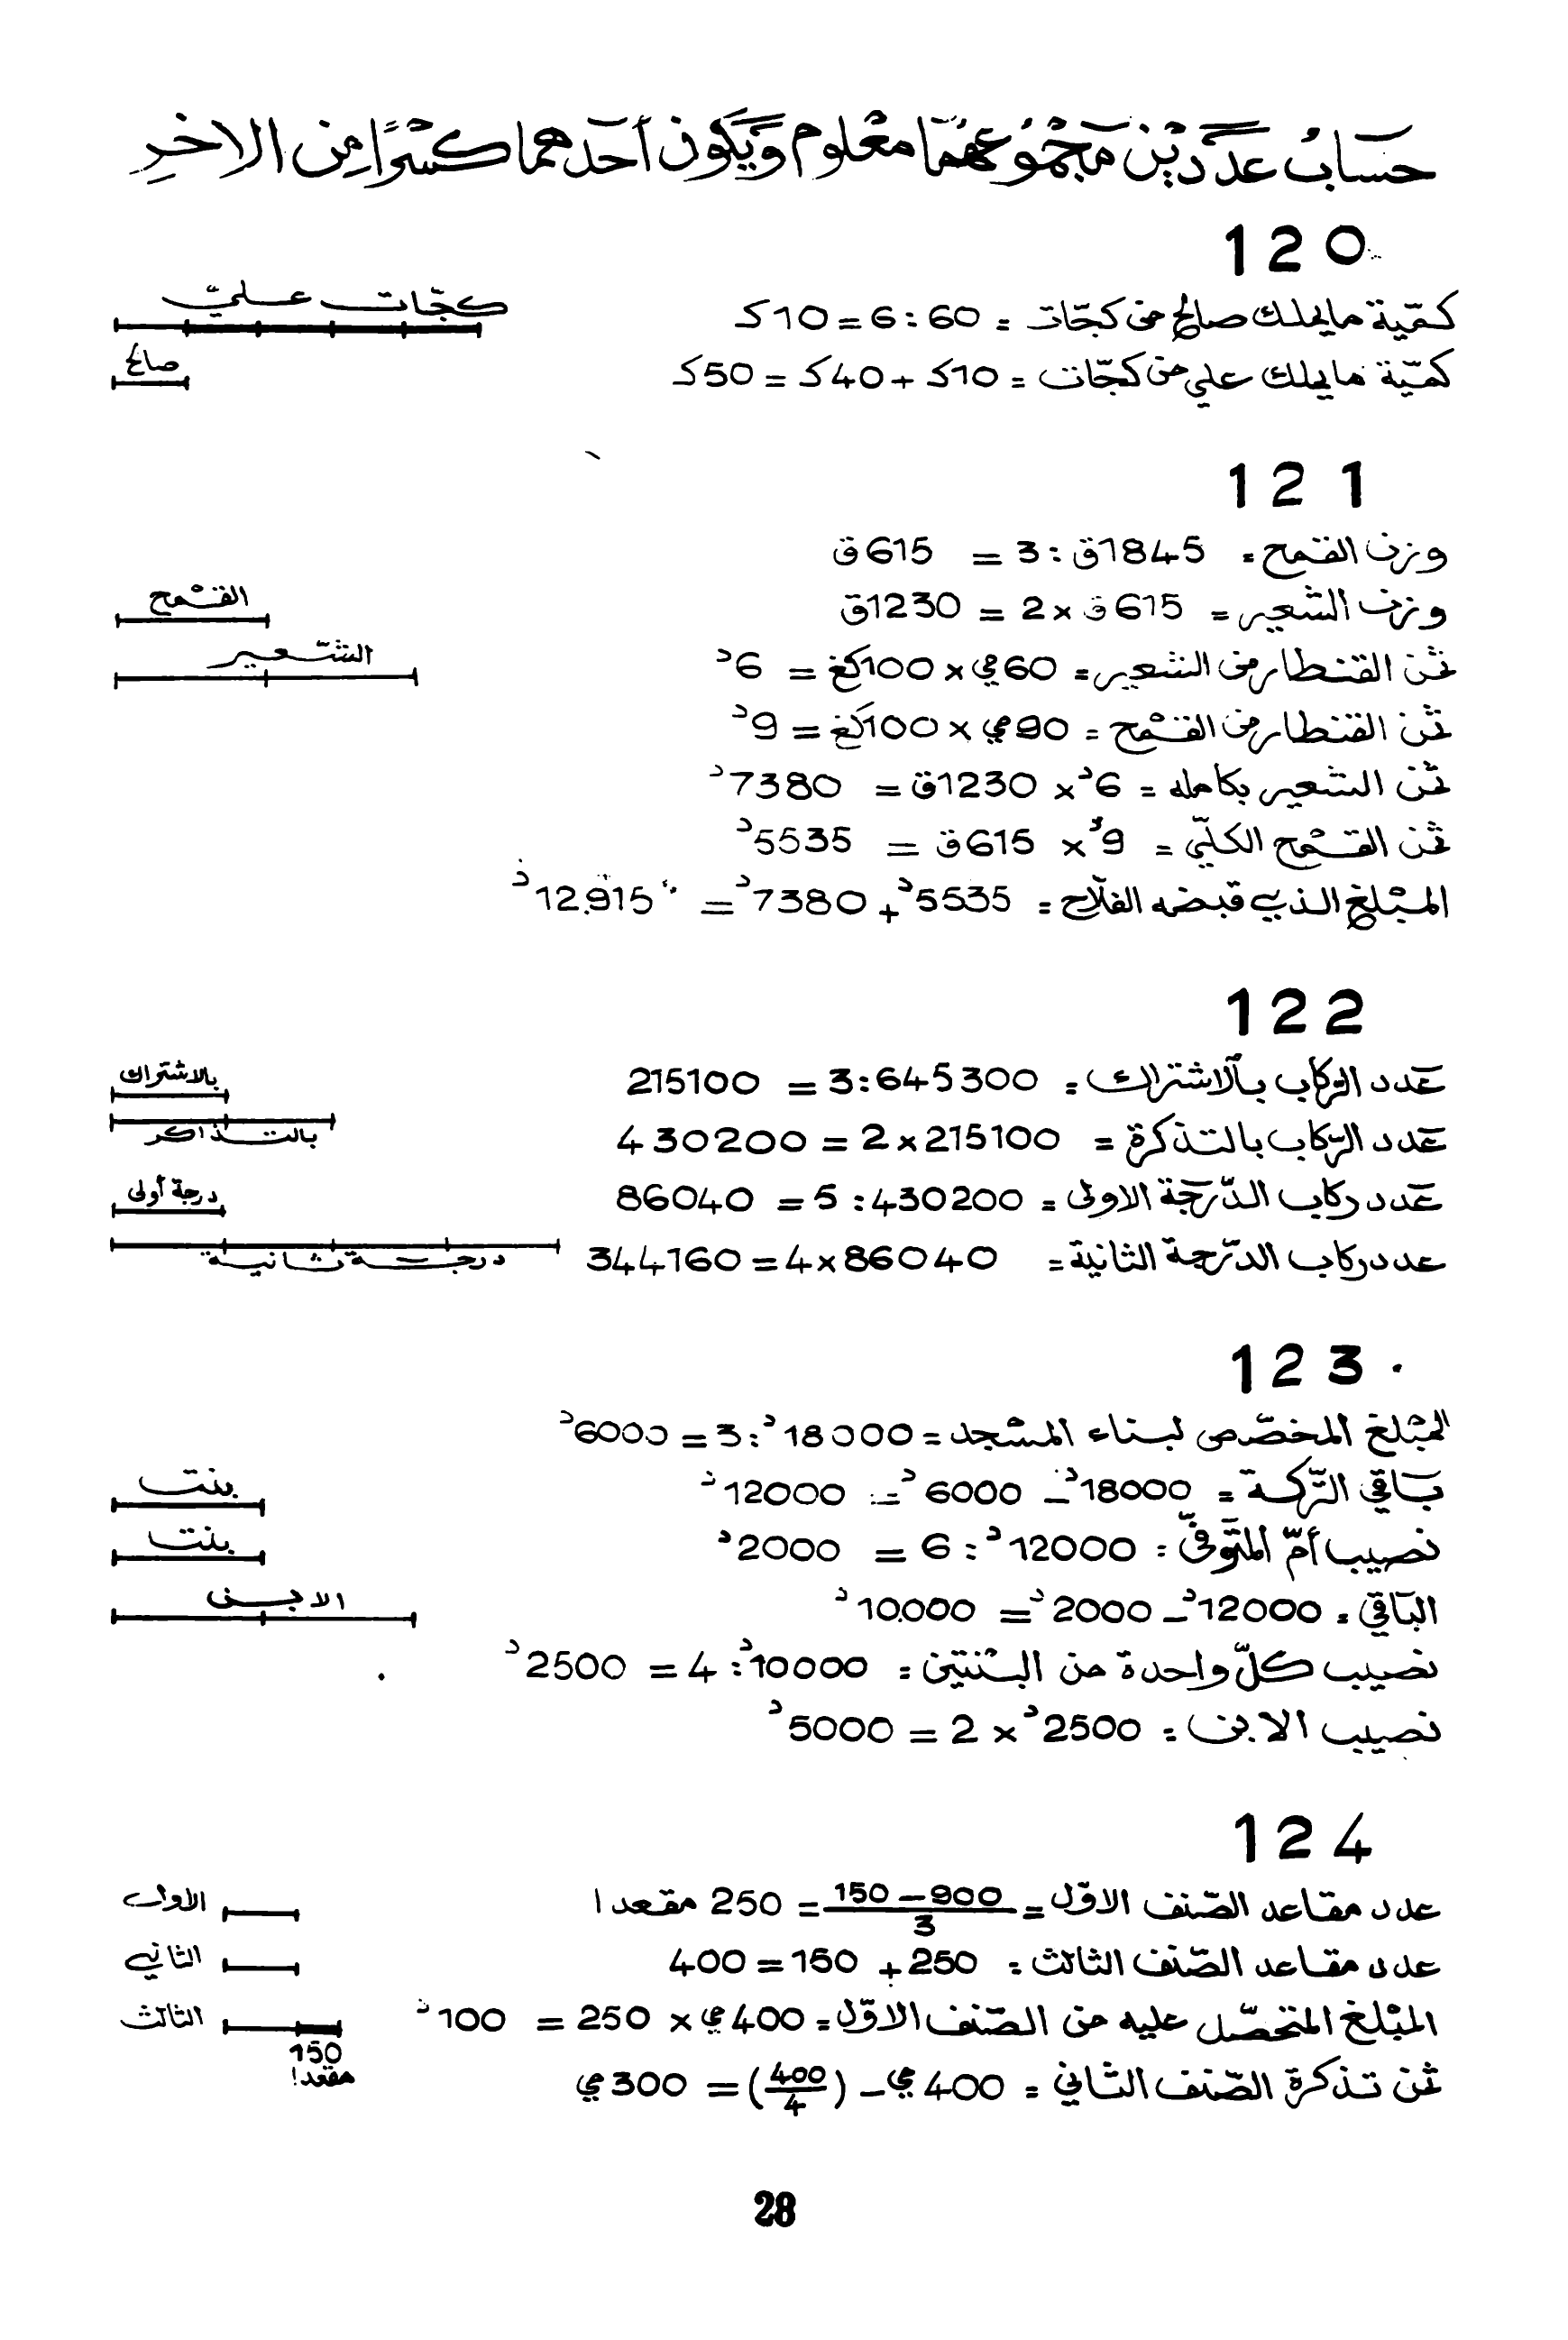 حسَابُ عدَديْن مَجْمُوعُهُمَا معْلوم وَيَكون أحَدهما كسْرًا مِن الاخرِ
120
كمّية ما يملك صالح من كجّات = 60 : 6 = 10ك
كمّية ما يملك علي من كجّات = 10ك + 40ك = 50ك
كجّات عليّ
صالح
121
وزن القمح = 1845ق : 3 = 615ق
وزن الشّعير = 615ق x 2 = 1230ق
ثمن القنطار من الشعير = 60مي x 100كغ = 6د
ثمن القنطار من القمْح = 90مي x 100كغ = 9د
ثمن الشعير بكامله = 6د x 1230ق = 7380د
ثمن القمْح الكلّي = 9د x 615ق = 5535د
المبْلغ الذي قبضه الفلاّح = 5535د + 7380د = 12.915د
القمْح
الشّعير
122
عَدد الركاب بالاشتراك = 645300 : 3 = 215100
عَدد الرّكاب بالتذكرة = 215100 x 2 = 430200
عَدد ركاب الدّرَجَة الاولى = 430200 : 5 = 86040
عدد ركاب الدّرجة الثانية = 86040 x 4 = 344160
بالاشتراك
بالتذاكر
درجة أولى
درجة ثانية
123
المبْلغ المخصّص لبناء المسْجد = 18000د : 3 = 6000د
بَاقي التّركة = 18000د – 6000د = 12000د
نصيب أمّ المتَوَفّى = 12000د : 6 = 2000د
البَاقي = 12000د – 2000د = 10.000د
نصيب كلّ واحدة من البنْتين = 10000د : 4 = 2500د
نصيب الابن = 2500د x 2 = 5000د
بنت
بنت
الابن
124
عدد مقاعد الصّنف الاوّل = (900 – 150)/3 = 250 مقعدا
عدد مقاعد الصّنف الثالث = 250 + 150 = 400
المبْلغ المتحصّل عليه من الصّنف الاوّل = 400مي x 250 = 100د
ثمن تذكرة الصّنف الثّاني = 400مي – (400/4) = 300مي
الاول
الثاني
الثالث
150
مقعدا
28